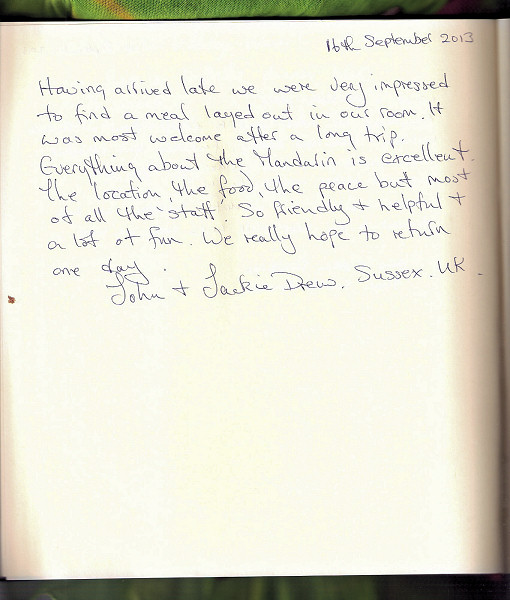 16th September 2013
Having arrived late we were very impressed
to find a meal layed out in our room. It
was most welcome after a long trip.
Everything about the Mandarin is excellent.
The location, the food, the peace but most
of all the 'staff'. So friendly + helpful +
a lot of fun. We really hope to return
one day.
John + Jackie Drew. Sussex. UK.